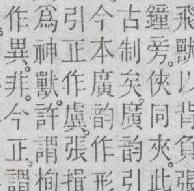 飛獸以背負
鐘旁。俠同夾。此
古制矣。廣韵引
今本廣韵作形
引正作虡。張揖
爲神獸。許謂栒
作異。非。今正。謂